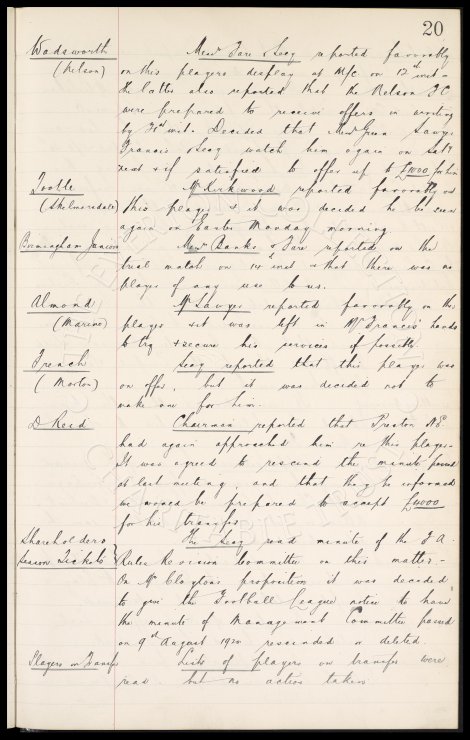 20
Wadsworth Messrs Fare & Secy reported favorably
(Nelson) on this players display at M/c on 12th inst-
the latter also reported that the Nelson F.C
were prepared to receive offers in writing
by inst. Decided that Messrs Green Sawyer
Francis & Secy watch him again on Saty
next & if satisfied to offer up to £1000 for him
Tootle Mr Kirkwood reported favorably on
(Skelmersdale) this player & it was decided he be seen
again on Easter Monday morning
Birmingham Juniors Messrs Banks & Fare reported on the
trial match on 14th inst & that there was no
player of any use to us.
Almond Mr Sawyer reported favorably on this
(Marine) player & it was left in Mr Francis' hands
to try & secure his services if possible.
French Secy reported that this player was
(Morton) on offer, but it was decided not to
make one for him.
D Reid Chairman reported that Preston N.E.
had again approached him re this player-
It was agreed to rescind the minute passed
at last meeting, and that they be informed
we would be prepared to accept
for his transfer.
Shareholders The Secy read minute of the F.A.
Season Tickets Rules Revision Committee on this matter.-
On Mr Claytons proposition it was decided
to give the Football League notice to have
the minute of Management Committee passed
on 9th August rescinded or deleted.
Players on Transfer Lists of players on transfer were
read but no action taken